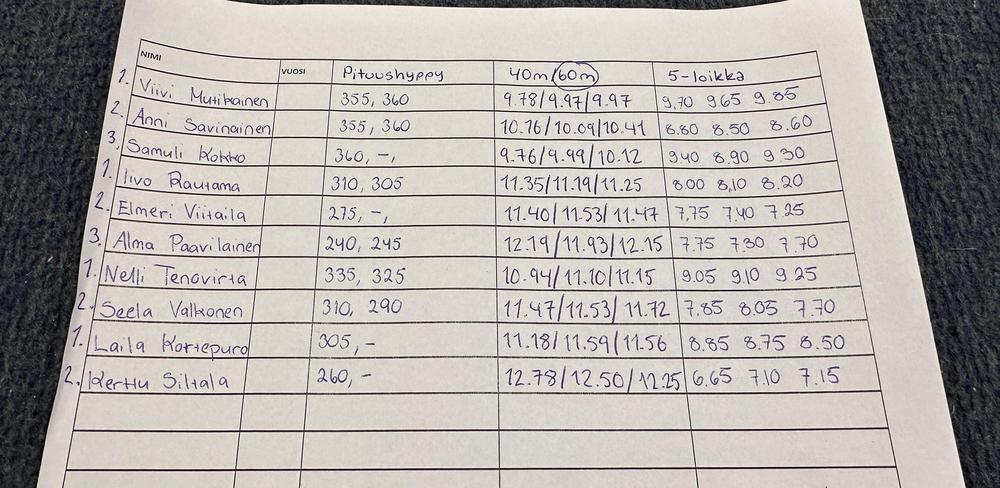 NIMI VUOSI Pituushyppy 40m/60m 5-loikka
1. Viivi Mutikainen 355, 360 9.78/9.97/9.97 9.70 9.65 9.85
2. Anni Savinainen 355, 360 10.16/10.09/10.41 8.80 8.50 8.60
3. Samuli Kokko 360, -, 9.76/9.99/10.12 9.40 8.90 9.30
1. Iivo Rautama 310, 305 11.35/11.19/11.25 8.00 8.10 8.20
2. Elmeri Viitaila 275, -, 11.40/11.53/11.47 7.75 7.40 7.25
3. Alma Paavilainen 240, 245 12.19/11.93/12.15 7.75 7.30 7.70
1. Nelli Tenovirta 335, 325 10.94/11.10/11.15 9.05 9.10 9.25
2. Seela Valkonen 310, 290 11.47/11.53/11.72 7.85 8.05 7.70
1. Laila Kortepuro 305, - 11.18/11.59/11.56 8.85 8.75 8.50
2. Kerttu Siltala 260, - 12.78/12.50/12.25 6.65 7.10 7.15